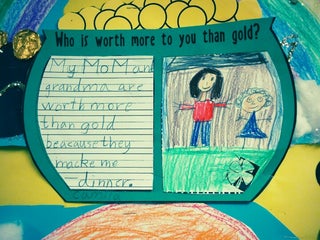 Who is worth more to you than gold?
My MoM and
grandma are
worth more
than gold
beacause they
make me
dinner.